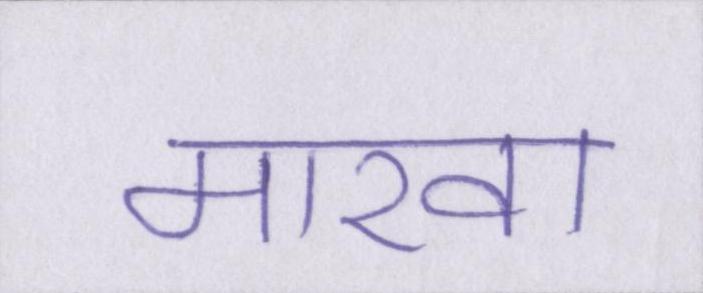 मारवा